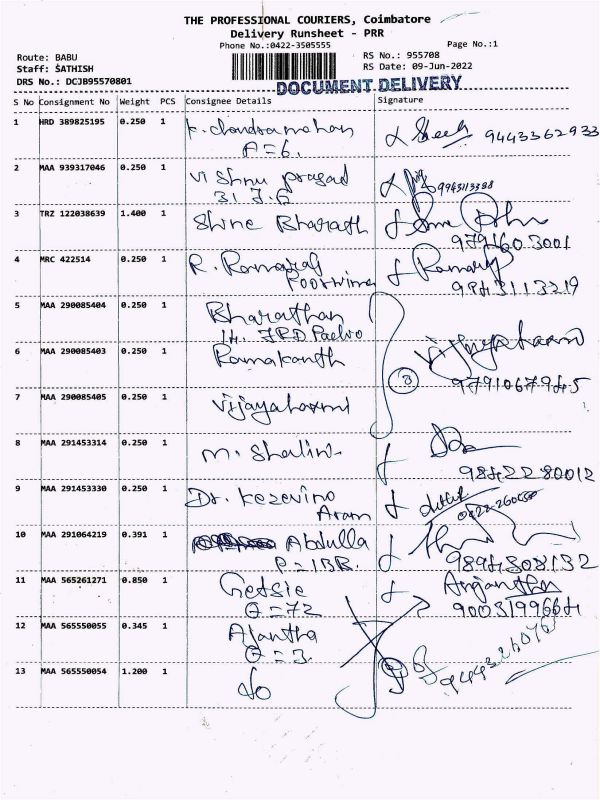 THE PROFESSIONAL COURIERS, Coimbatore
Delivery Runsheet - PRR
Phone No.:0422-3505555
Page No.:1
Route: BABU
RS No.: 955708
Staff: SATHISH
RS Date: 09-Jun-2022
DRS No.: DCJB95570801
DOCUMENT DELIVERY
S No Consignment No Weight PCS Consignee Details Signature
1 HRD 389825195 0.250 1 K. Chandramohan
A=6. 9443362933
2 MAA 939317046 0.250 1 Vishnu prasad 9943113388
3 TRZ 122038639 1.400 1 Shine Bharath
9791603001
4 MRC 422514 0.250 1 R. Ramaraj
Poornima 9843113219
5 MAA 290085404 0.250 1 Bharathan
14. JRD
6 MAA 290085403 0.250 1 Ramakanth
3 9791067945
7 MAA 290085405 0.250 1 Vijayalaxmi
8 MAA 291453314 0.250 1 M. Shalini
9842280012
9 MAA 291453330 0.250 1 Dr. Kezevino
Aram
10 MAA 291064219 0.391 1 Abdulla
9894308132
11 MAA 565261271 0.850 1 Getsie
G=72 9003199664
12 MAA 565550055 0.345 1 Ajantha
G=3
13 MAA 565550054 1.200 1 do